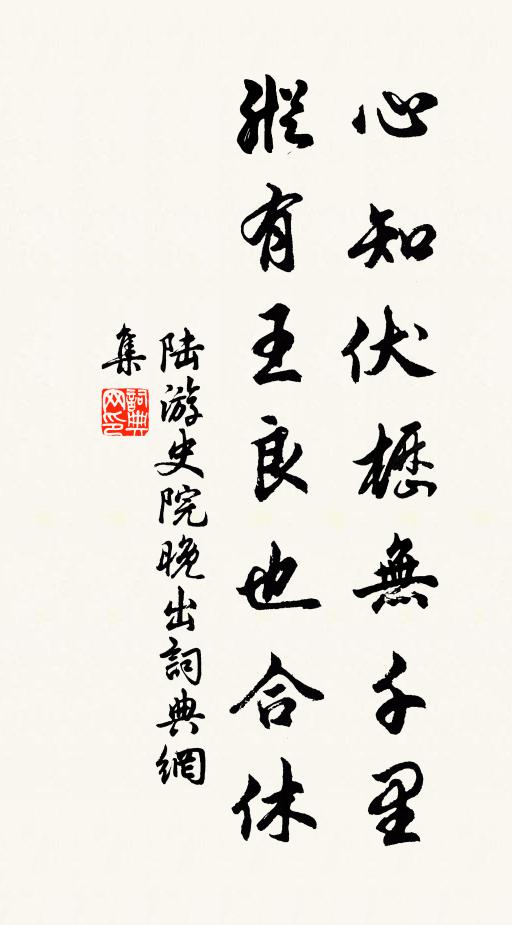 心知伏櫪無千里
縱有王良也合休
陸游史院晚出詞典網
集
詞典
网印